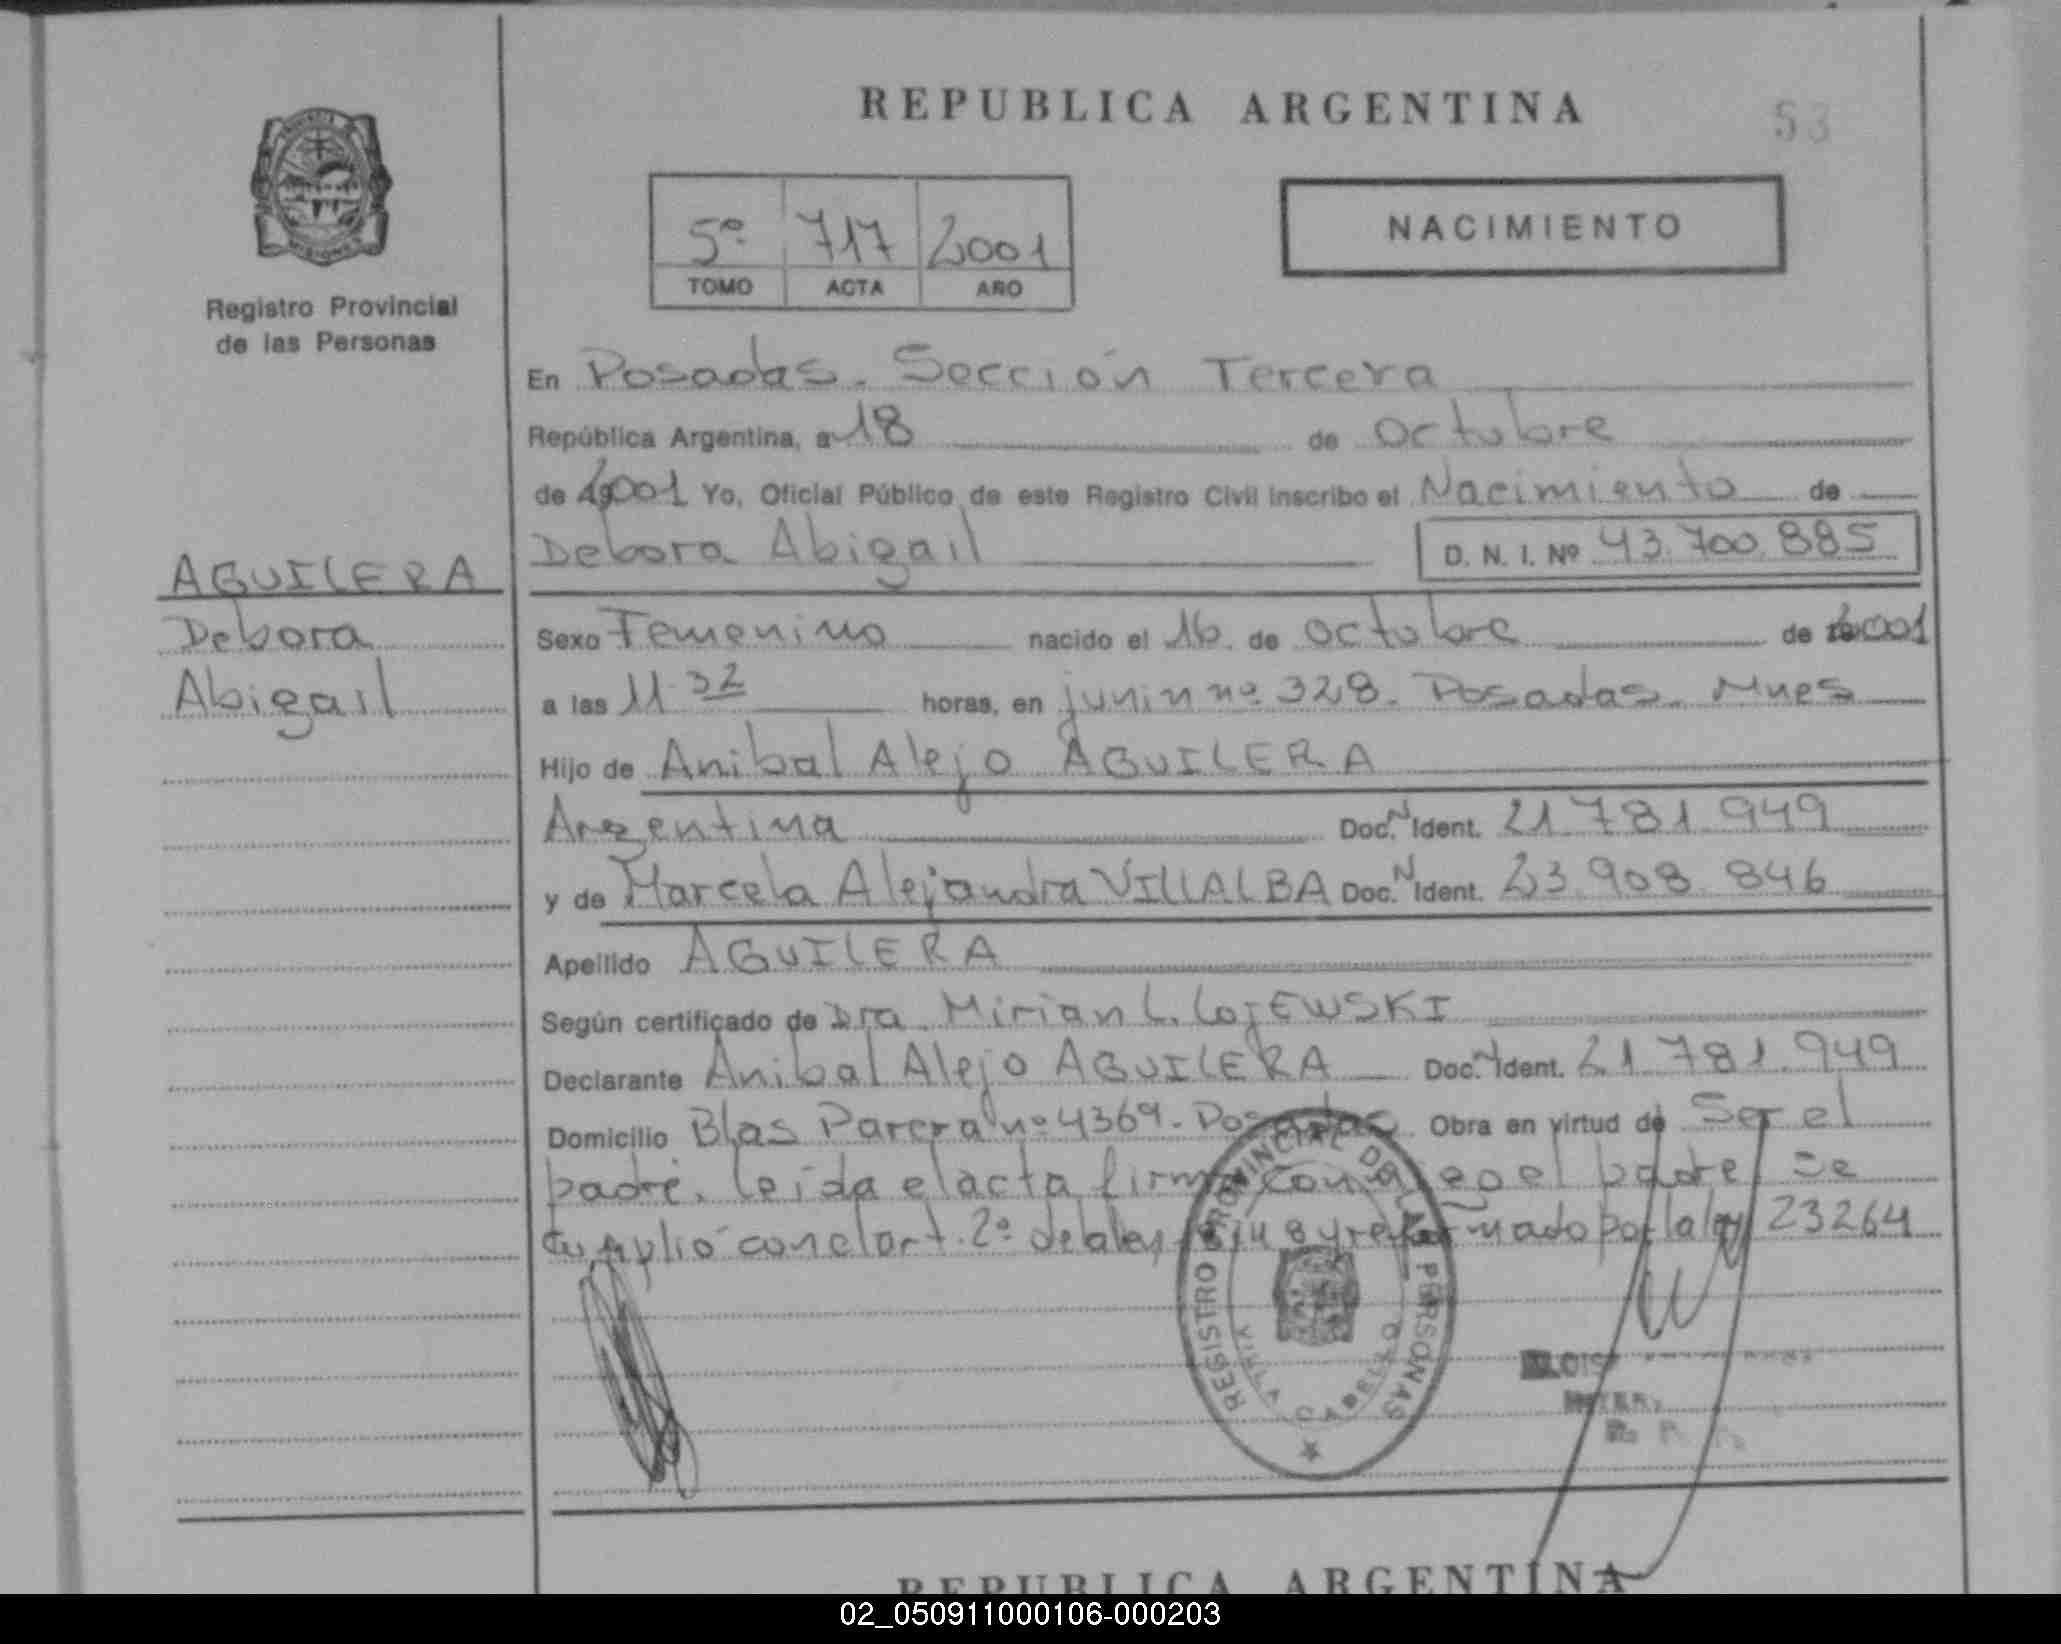 REPUBLICA ARGENTINA
53
PROVINCIA DE
MISIONES
Registro Provincial
de las Personas
NACIMIENTO
5º 717 2001
TOMO ACTA AÑO
En Posadas. Sección Tercera
República Argentina, a 18 de Octubre
de 2001 Yo, Oficial Público de este Registro Civil inscribo el Nacimiento de
Debora Abigail D. N. I. Nº 43.700.885
AGUILERA
Debora
Abigail
Sexo Femenino nacido el 16 de octubre de 2001
a las 11.32 horas, en junin nº 328. Posadas. Mnes
Hijo de Anibal Alejo AGUILERA
Argentina Doc. N Ident. 21.781.949
y de Marcela Alejandra VILLALBA Doc. N Ident. 23.908.846
Apellido AGUILERA
Según certificado de Dra. Mirian L. LOJEWSKI
Declarante Anibal Alejo AGUILERA Doc. N Ident. 21.781.949
Domicilio Blas Parera nº 4369. Posadas. Obra en virtud de Ser el
padre. leida el acta firma conmigo el padre se
cumplio con el art. 2º de la ley y reformado por la ley 23264
REGISTRO PROVINCIAL DE LAS PERSONAS
VILLA CABELLO
REPUBLICA ARGENTINA
02_050911000106-000203